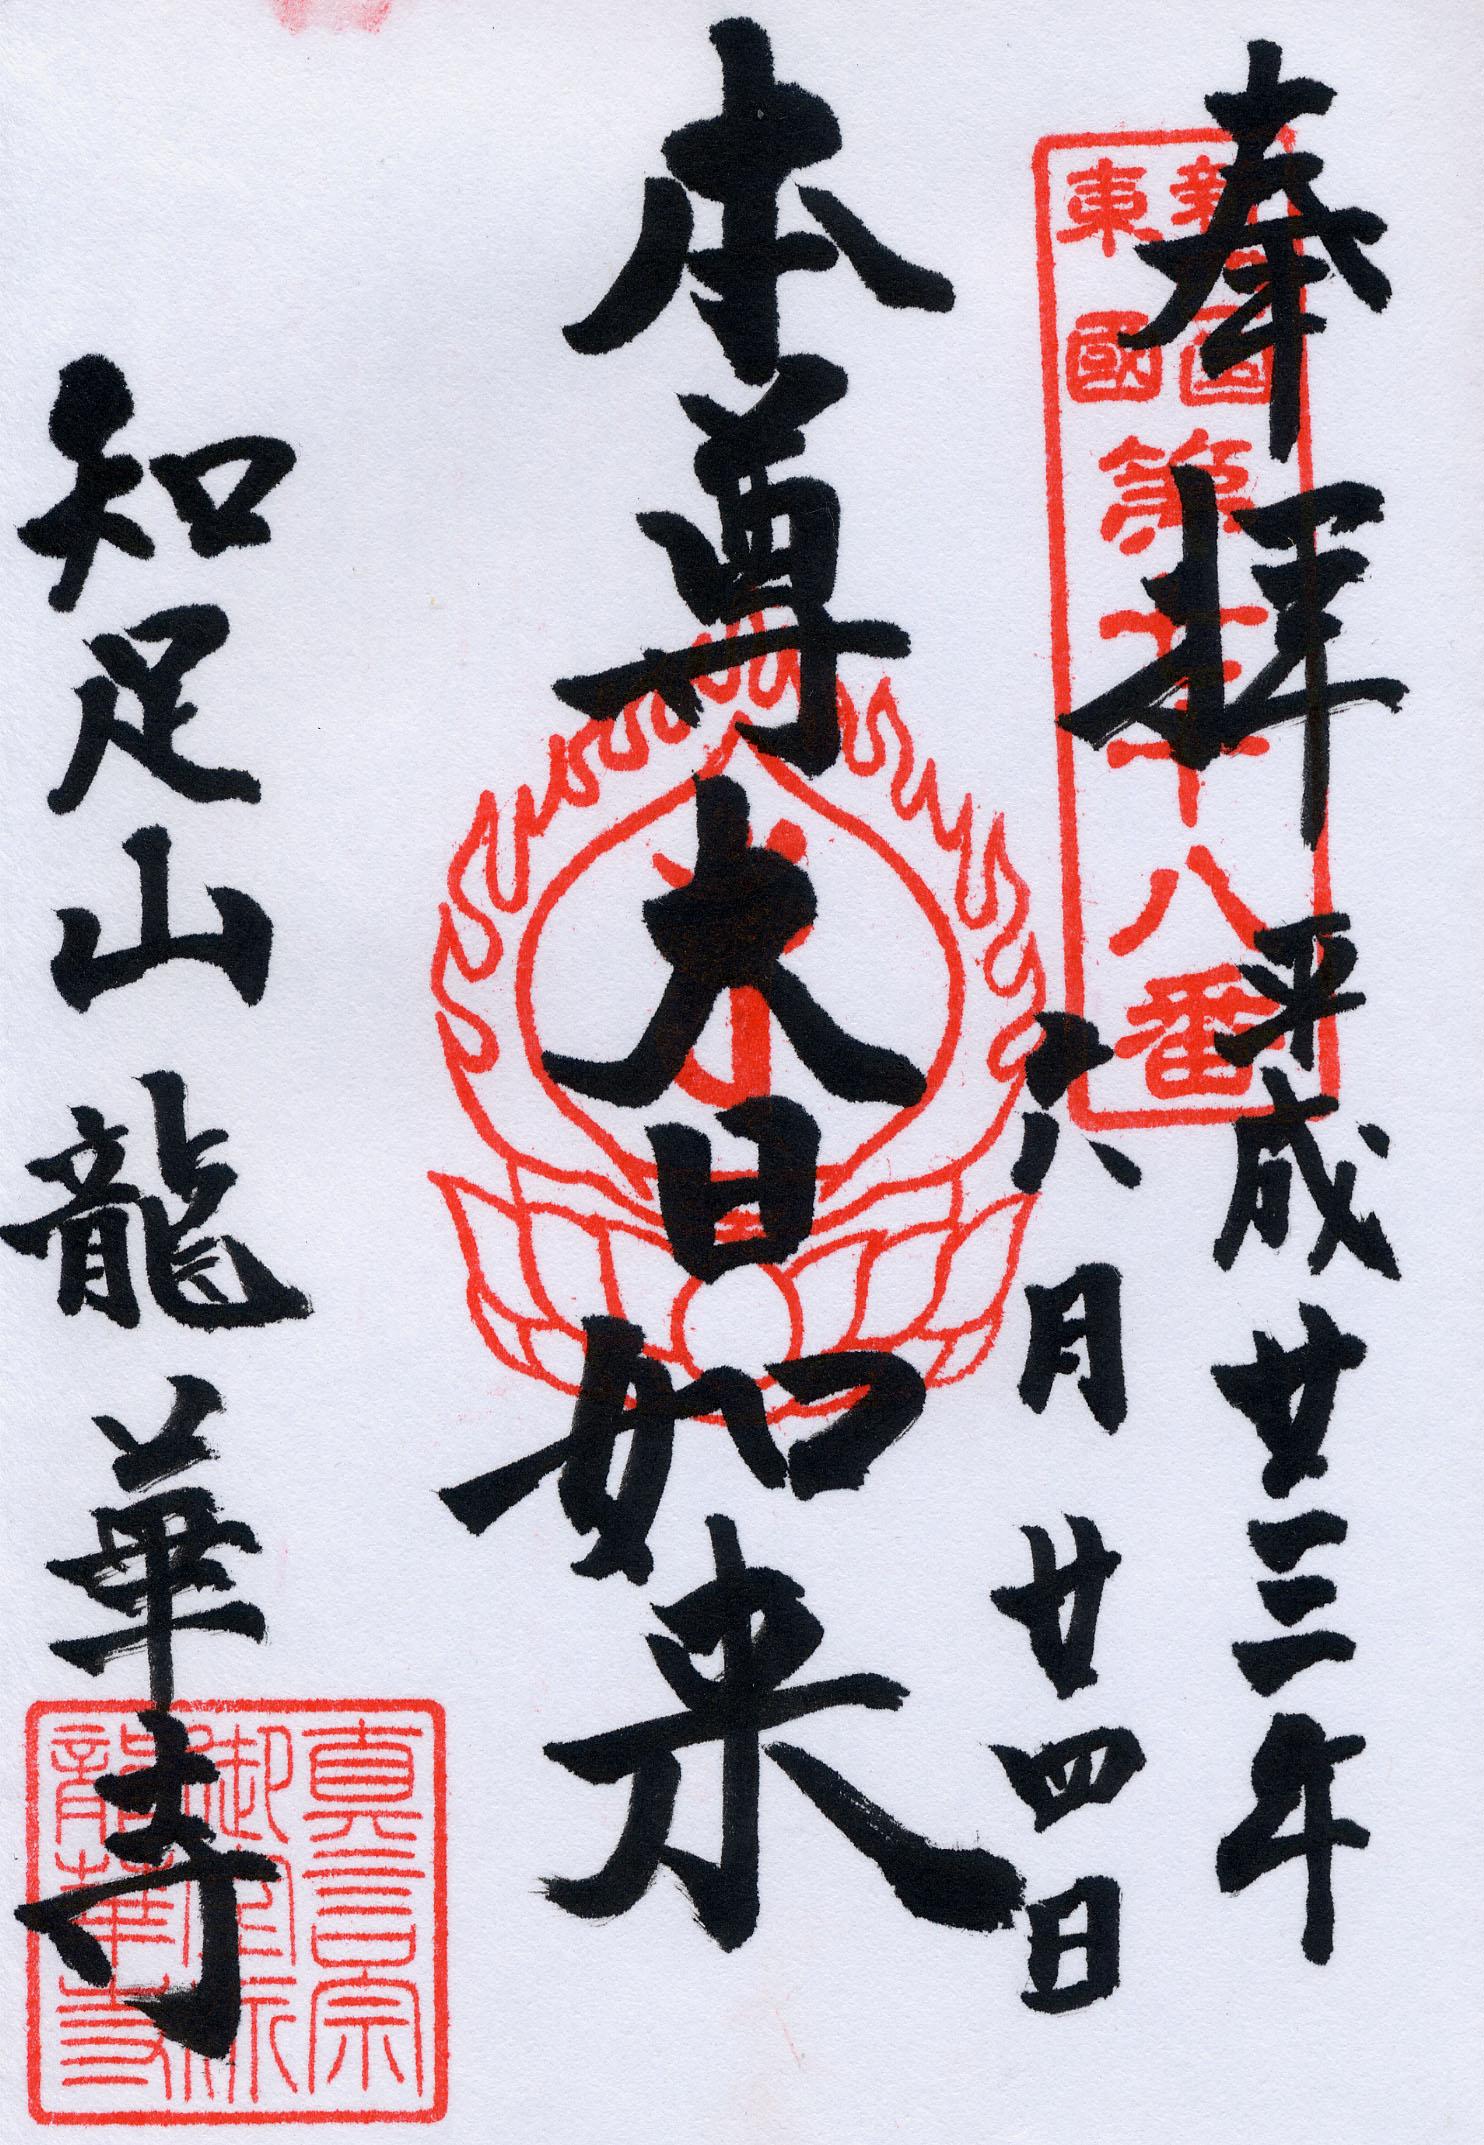 奉拝 平成廿三年
六月廿四日
本尊大日如来
知足山龍華寺
新四
東國
第十八番
真言宗
御室派
龍華寺